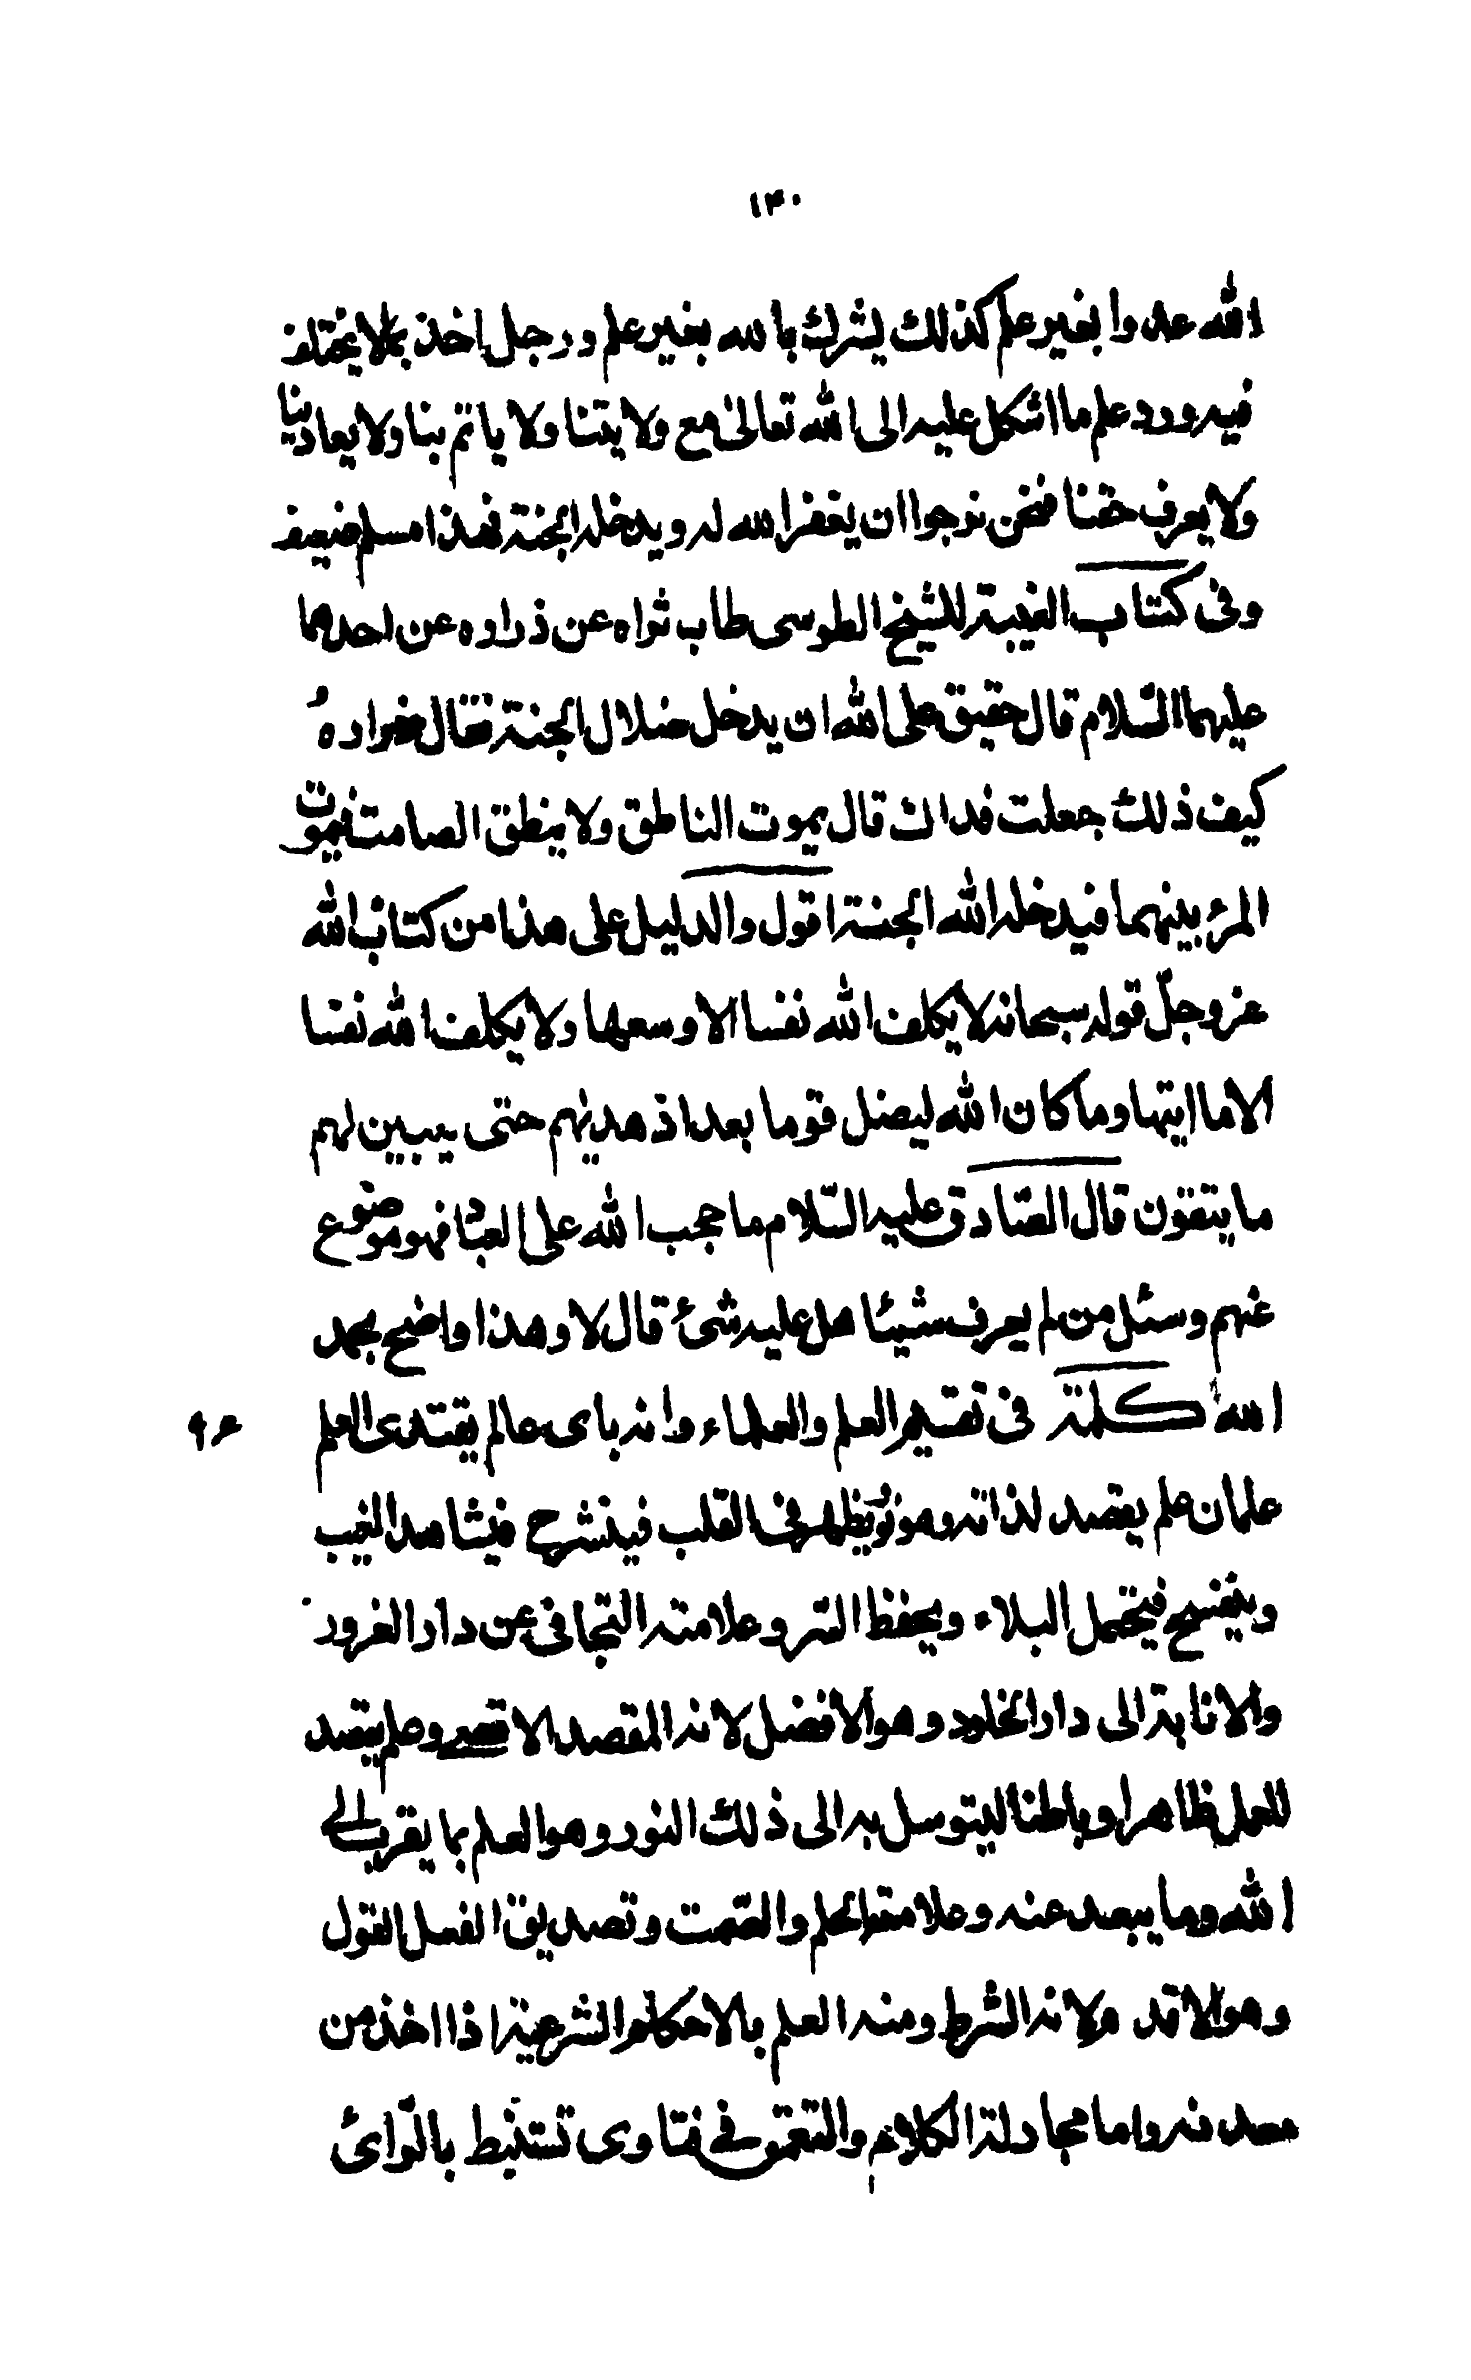 ١٣٠
الله عدوا بغير علم كذلك يشرك بالله بغير علم ورجل اخذ بما لا يختلف
فيه ورد علم ما اشكل عليه الى الله تعالى مع ولايتنا ولا ياتم بنا ولا يعادينا
ولا يعرف حقنا فنحن نرجوا ان يغفر الله له ويدخله الجنة فهذا مسلم ضعيف
وفى كتاب الغيبة للشيخ الطوسى طاب ثراه عن زراره عن احدهما
عليهما السّلام قال حقيق على الله ان يدخل ضلال الجنة فقال زراره
كيف ذلك جعلت فداك قال يموت الناطق ولا ينطق الصامت فيموت
المرء بينهما فيدخله الله الجنة اقول والدليل على هذا من كتاب الله
عز وجلّ قوله سبحانه لا يكلف الله نفسا الا وسعها ولا يكلف الله نفسا
الا ما اتيها وما كان الله ليضل قوما بعد اذ هديهم حتى يبين لهم
ما يتقون قال الصّادق عليه السّلام ما حجب الله على العباد فهو موضوع
عنهم وسئل من لم يعرف شيئا هل عليه شئ قال لا وهذا واضح بحمد
الله كلمة فى تقسيم العلم والعلماء وانه باى عالم يقتدى العلم
٩۶
علمان علم يقصد لذاته وهو نور يظهر فى القلب فينشرح فيشاهد الغيب
وينفسح فيتحمل البلاء ويحفظ السّر وعلامته التجافى عن دار الغرور
والانابة الى دار الخلود وهو الافضل لانه المقصد الاقصى وعلم يقصد
للعمل ظاهرا وباطنا ليتوسل به الى ذلك النور وهو العلم بما يقرب الى
الله وما يبعد عنه وعلامته الحلم والصّمت وتصديق الفعل القول
وهو الاقدم لانه الشرط ومنه العلم بالاحكام الشرعية اذا اخذ من
معدنه واما مجادلة الكلام والتعمّق فى فتاوى تستنبط بالرّائ